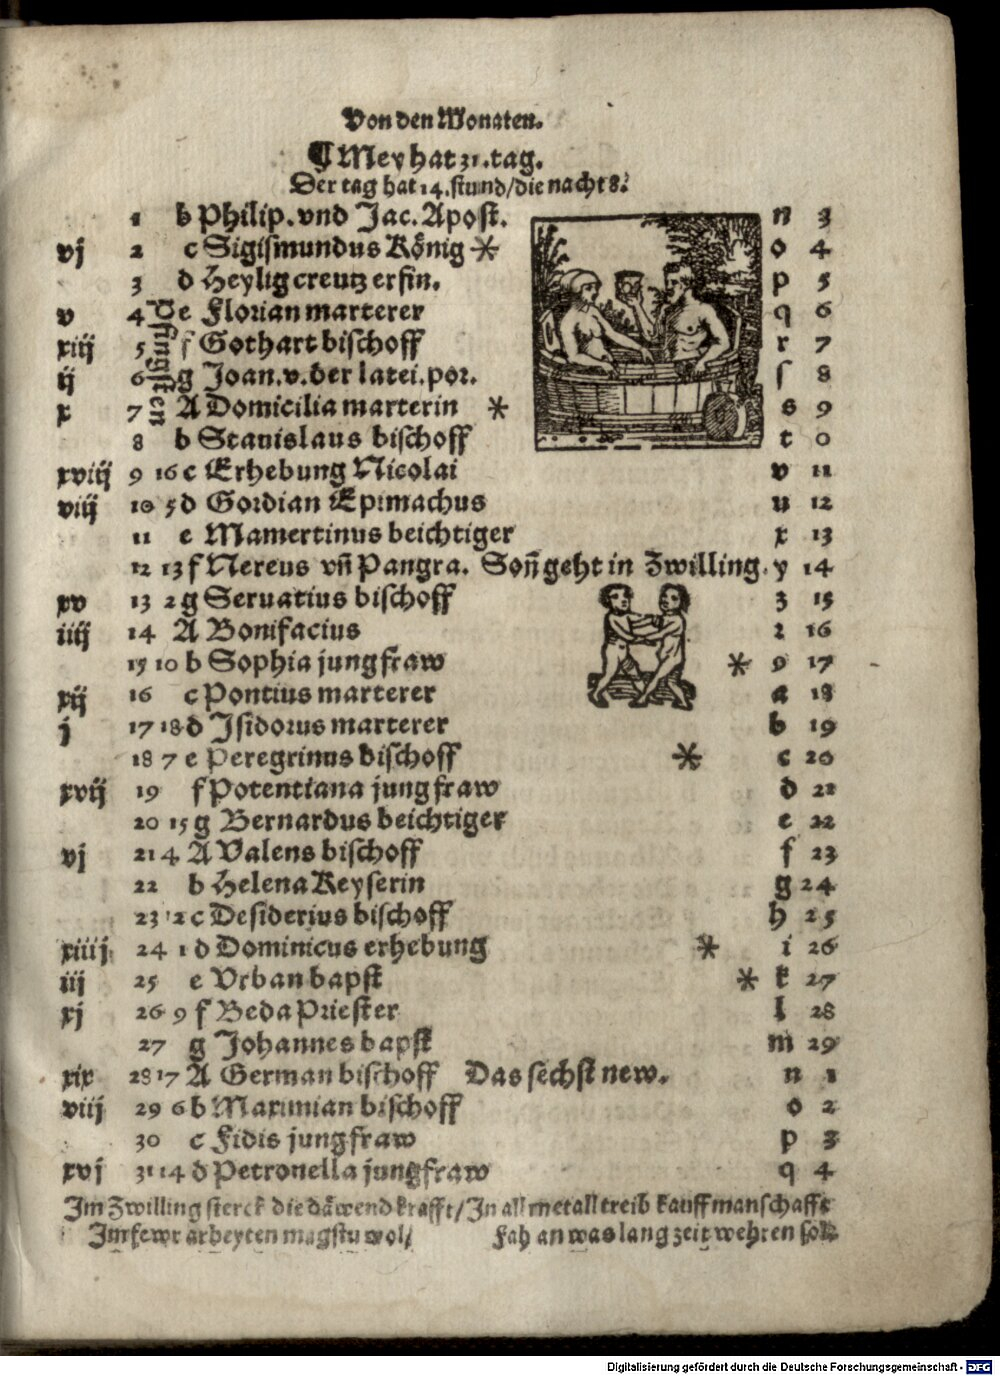 Von den Monaten.
¶ Mey hat 31. tag.
Der tag hat 14. stund/die nacht 8.
1 b Philip. vnd Jac. Apost. n 3
vj 2 c Sigismundus König * o 4
3 d Heylig creutz erfin. p 5
v 4 e Florian marterer q 6
Pfingsten
xiij 5 f Gothart bischoff r 7
ij 6 g Joan. v. der latei. por. ſ 8
x 7 A Domicilia marterin * s 9
8 b Stanislaus bischoff t 0
xviij 9 16 c Erhebung Nicolai v 11
viij 10 5 d Gordian Epimachus u 12
11 e Mamertinus beichtiger x 13
12 13 f Nereus vñ Pangra. Soñ geht in Zwilling. y 14
xv 13 2 g Seruatius bischoff z 15
iiij 14 A Bonifacius 2 16
15 10 b Sophia jungfraw * 9 17
xij 16 c Pontius marterer a 18
j 17 18 d Isidorus marterer b 19
18 7 e Peregrinus bischoff * c 20
xvij 19 f Potentiana jungfraw d 21
20 15 g Bernardus beichtiger e 22
vj 21 4 A Valens bischoff f 23
22 b Helena Keyserin g 24
23 12 c Desiderius bischoff h 25
xiiij 24 1 d Dominicus erhebung * i 26
iij 25 e Vrban bapst * k 27
xj 26 9 f Beda Priester l 28
27 g Johannes bapst m 29
xix 28 17 A German bischoff Das sechst new. n 1
viij 29 6 b Maximian bischoff o 2
30 c Fidis jungfraw p 3
xvj 31 14 d Petronella jungfraw q 4
Im Zwilling sterck die däwend krafft/In all metall treib kauffmanschafft
Im fewr arbeyten magstu wol/ Fah an was lang zeit wehren sol.
Digitalisierung gefördert durch die Deutsche Forschungsgemeinschaft - DFG